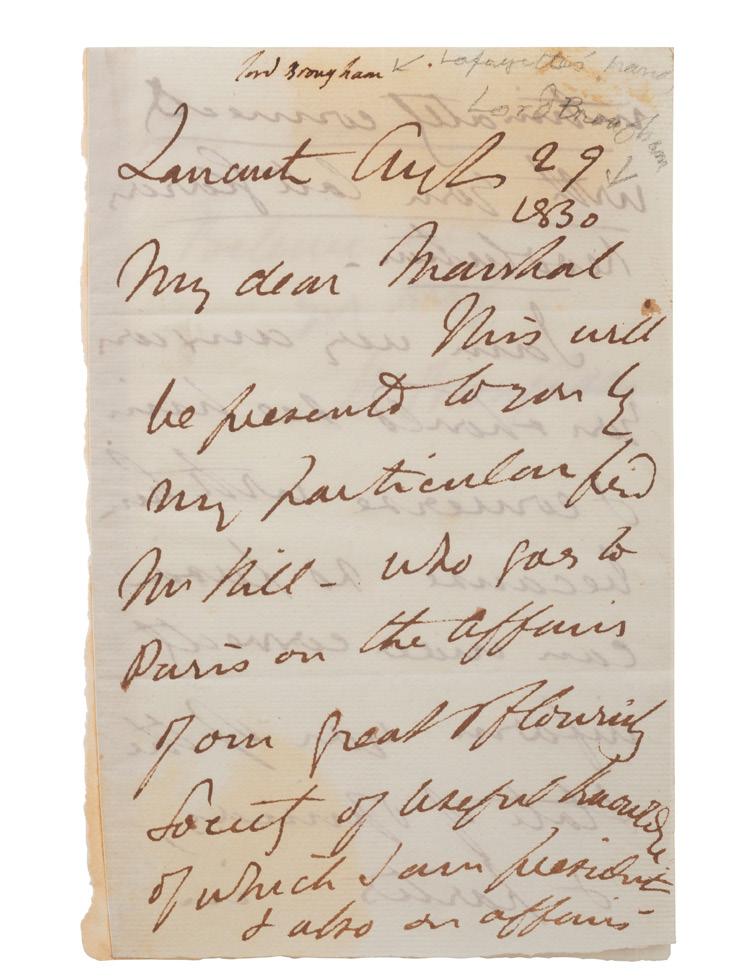 Lord Brougham Lafayette's hand
Lord Brougham
Augt 29
1830
My dear Marshal
This will
be presented to you by
my particular frid
Mr Hill - who goes to
Paris on the affairs
of our great & flourishg
Society of useful knowledge
of which I am president
& also on affairs